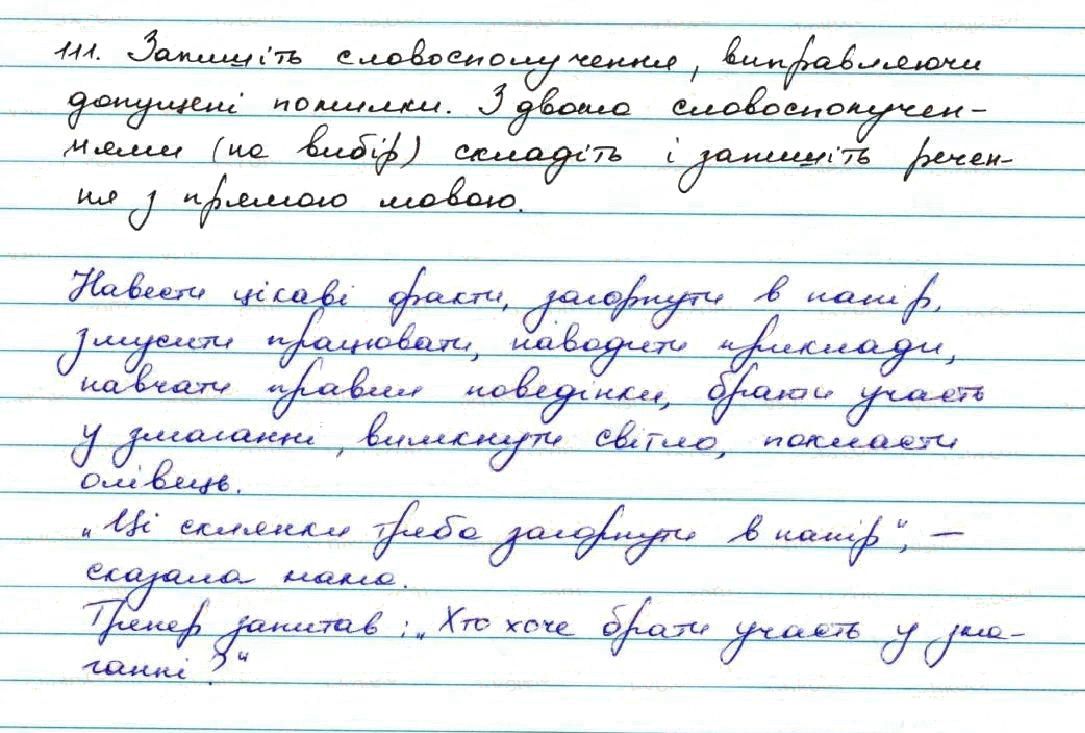 111. Запишіть словосполучення, виправляючи
допущені помилки. З двома словосполучен-
нями (на вибір) складіть і запишіть речен-
ня з прямою мовою.
Навести цікаві факти, загорнути в папір,
змусити працювати, наводити приклади,
навчати правил поведінки, брати участь
у змаганні, вимкнути світло, покласти
олівець.
„Ці склянки треба загорнути в папір“, —
сказала мама.
Тренер запитав: „Хто хоче брати участь у зма-
ганні?“